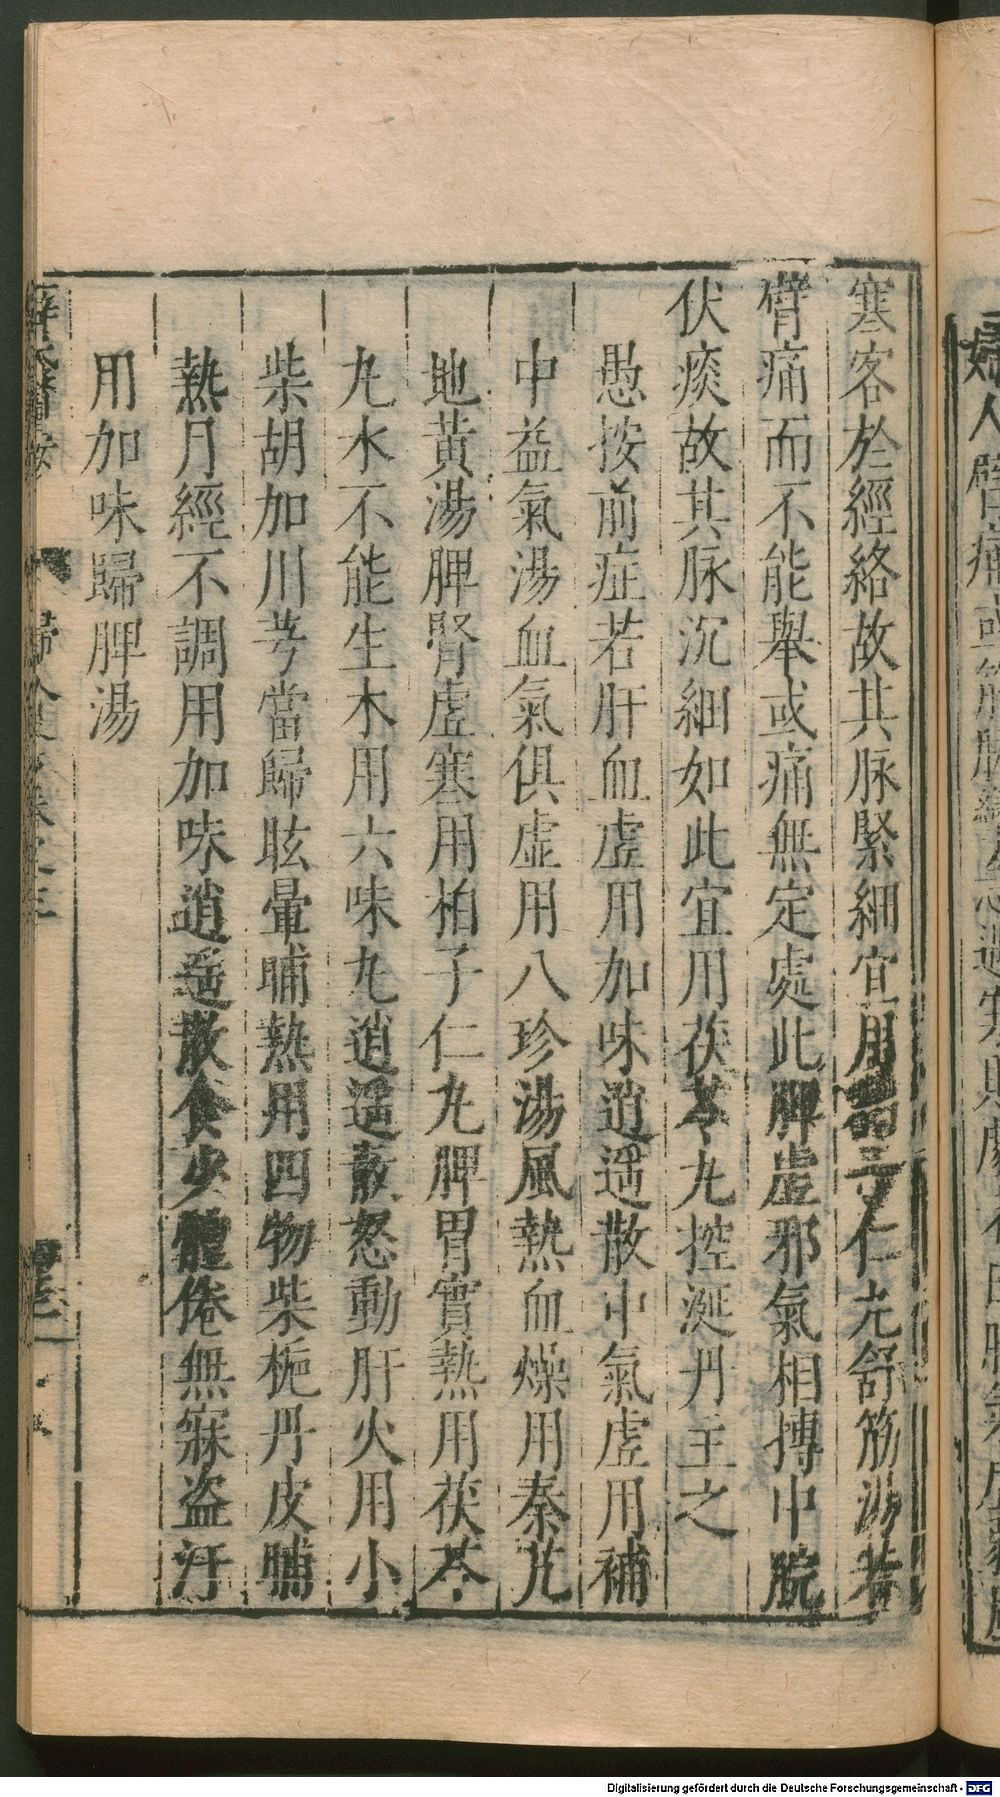 寒客於經絡故其脉緊細宜用栢子仁丸舒筋湯若
臂痛而不能舉或痛無定處此脾虛邪氣相搏中脘
伏痰故其脉沉細如此宜用茯苓丸控涎丹主之
愚按前症若肝血虛用加味逍遥散中氣虛用補
中益氣湯血氣俱虛用八珍湯風熱血燥用秦艽
地黄湯脾腎虛寒用柏子仁丸脾胃實熱用茯苓
丸水不能生木用六味丸逍遥散怒動肝火用小
柴胡加川芎當歸眩暈晡熱用四物柴梔丹皮晡
熱月經不調用加味逍遥散食少體倦無寐盗汗
用加味歸脾湯
婦人臂痛或筋脉
Digitalisierung gefördert durch die Deutsche Forschungsgemeinschaft - DFG